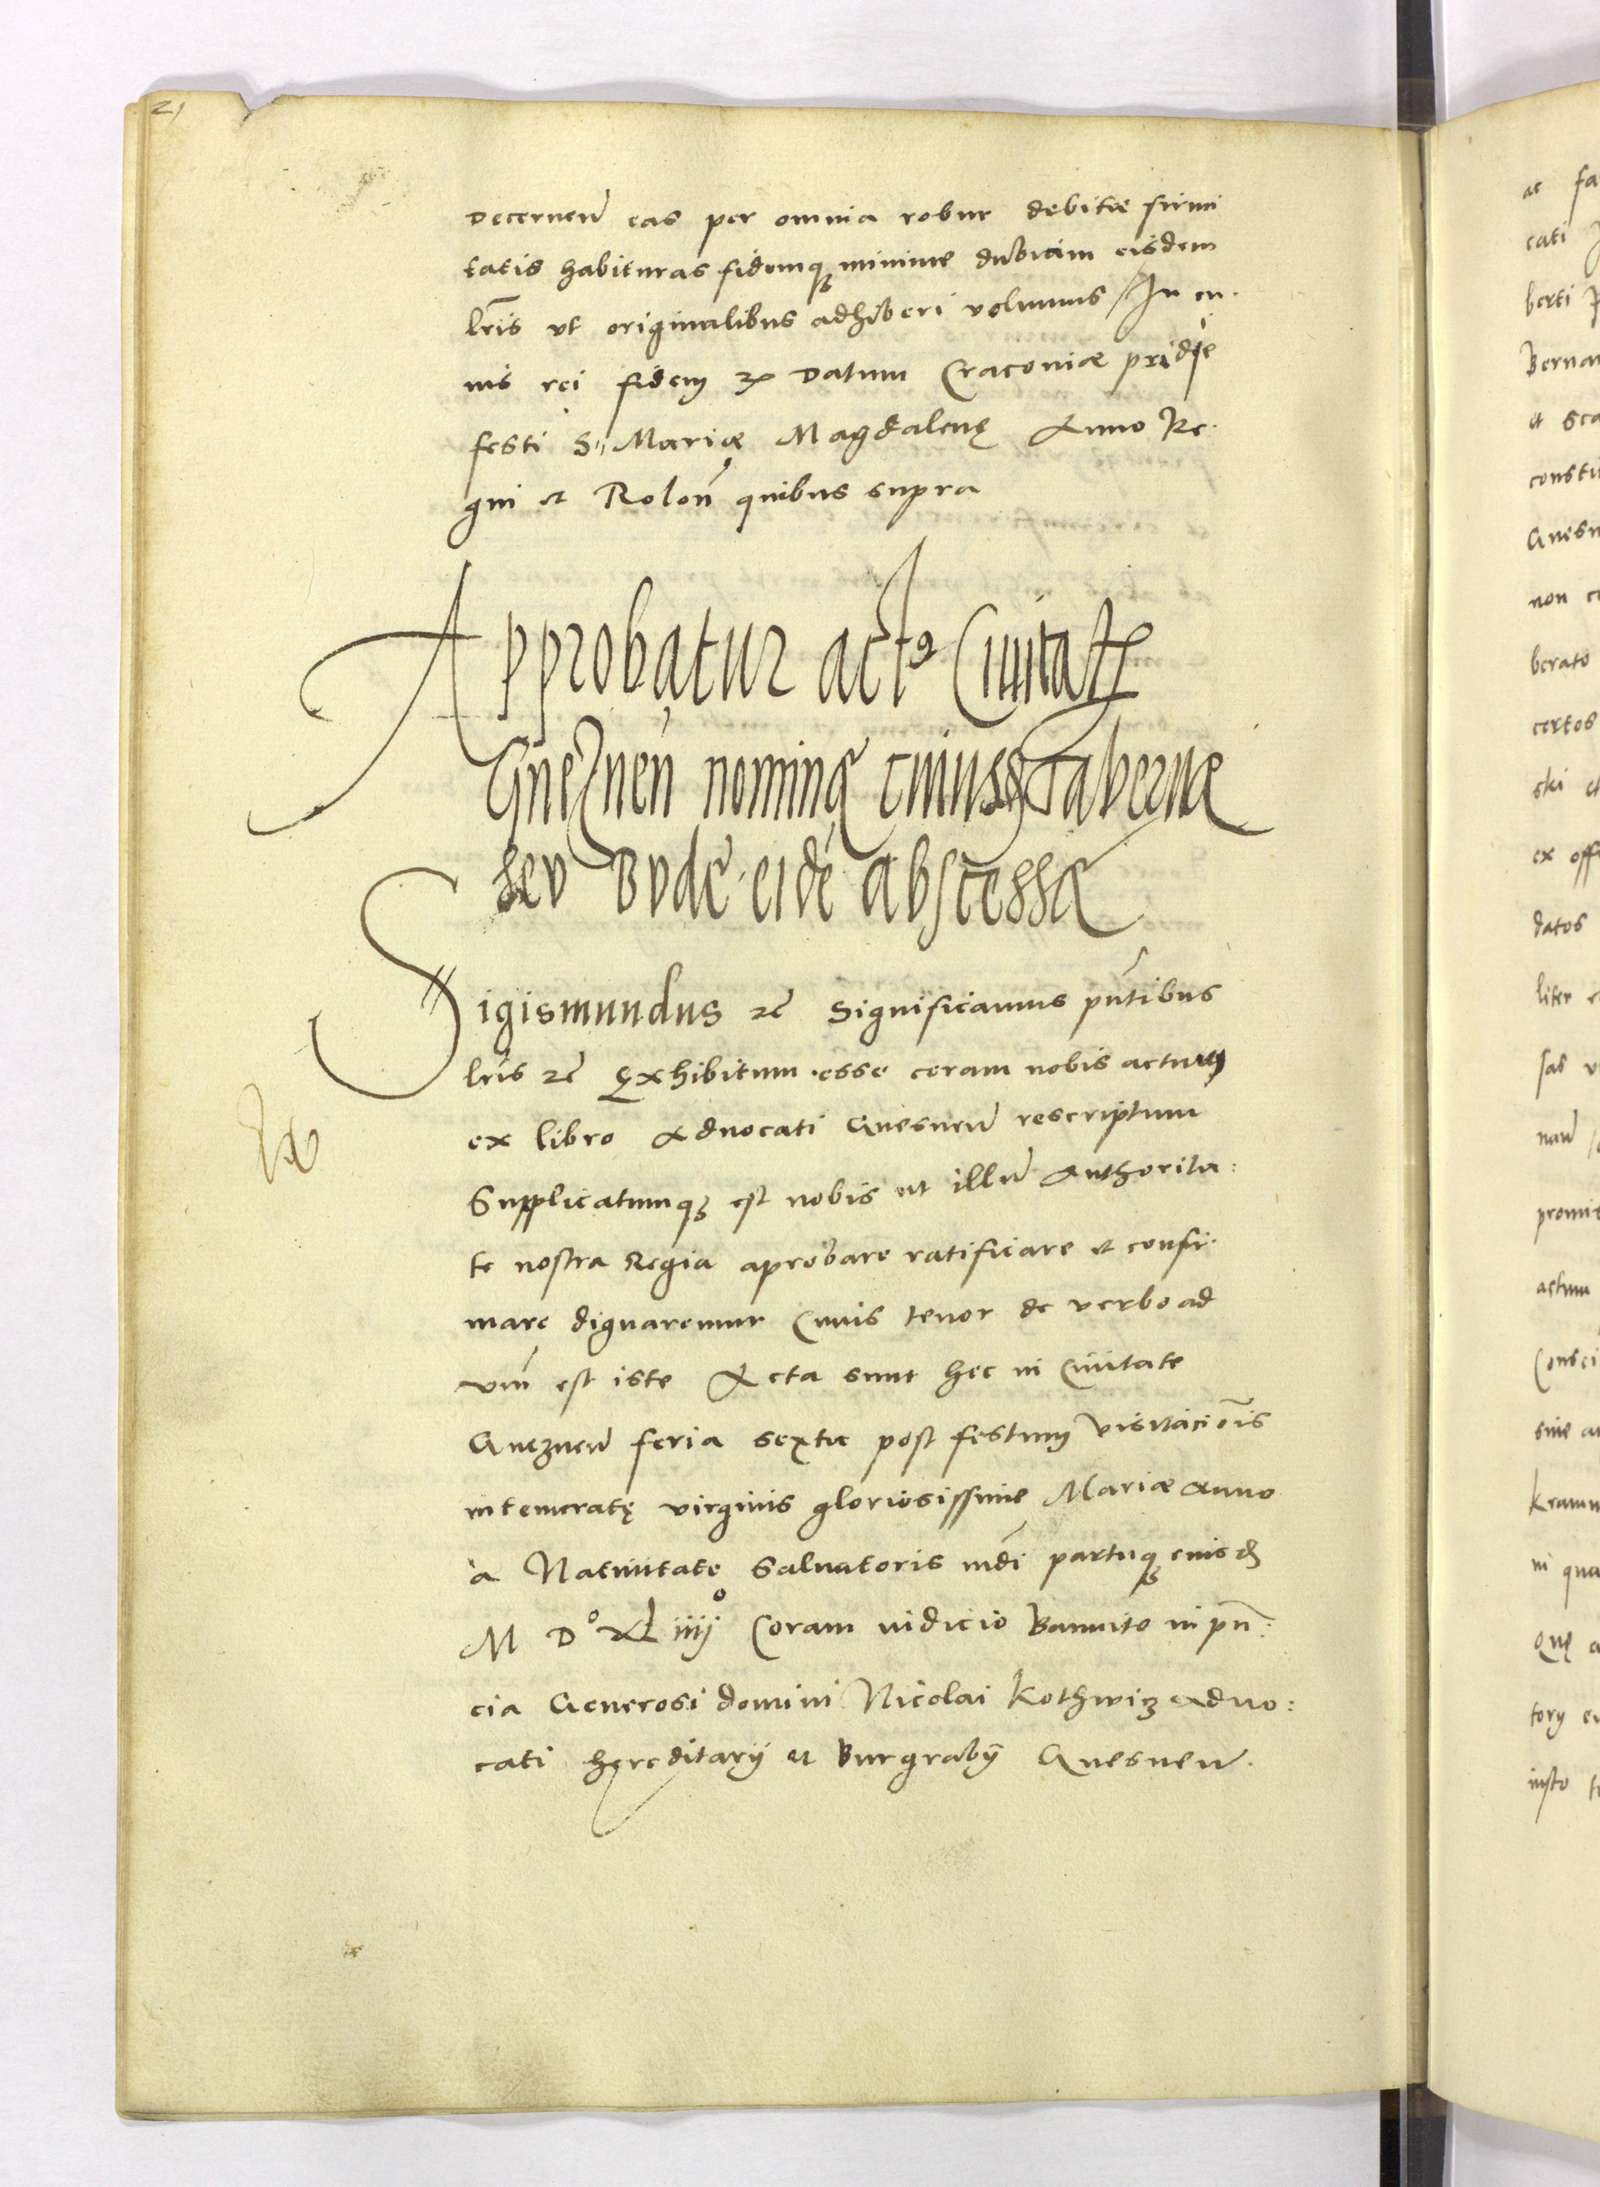 21
Decernen͂ eas per omnia robur debitæ firmi
tatis habituras fidemqꝫ minime dubiam eisdem
lr̃is vt originalibus adhiberi volumus / In cu·
ius rei fidem ⁊c̃ Datum Cracoviæ pridie
festi S. Mariæ Magdalenę Anno Re·
gni et Rolon͂ quibus supra
Approbatur actꝰ Civitatis
Gneznen̄ nomine cuiusdam Tabernæ
seu Budæ eidē abscessæ
Sigismundus ⁊c̃ Significamus pn̄tibus
lr̃is ⁊c̃ Exhibitum esse coram nobis actum
ex libro Advocati Gnesnen͂ rescriptum
Supplicatumqꝫ est nobis ut illum Authorita:
te nostra Regia aprobare ratificare et confir·
mare dignaremur Cuius tenor de verbo ad
vm̃ est iste Acta sunt hec in Civitate
Gneznen͂ feria sexta post festum Visitaciõis
intemeratę virginis gloriosissime Mariæ Anno
à Nativitate Salvatoris mdi͂ partuqꝫ eiusd
M D° XL iiij° Coram iudicio Bannito in pn̄:
cia Generosi domini Nicolai Kothwicz Advo:
cati hereditarij et Burgrabij Gnesnen͂.
ac fa
cati
berti
Bernar
et sca
constit
Gnesn
non
berato
certos
ski et
ex offi
datos
liter
sab
nam
promit
actum
Consci
sine
Kramn
ni qua
Quę
tory
iusto